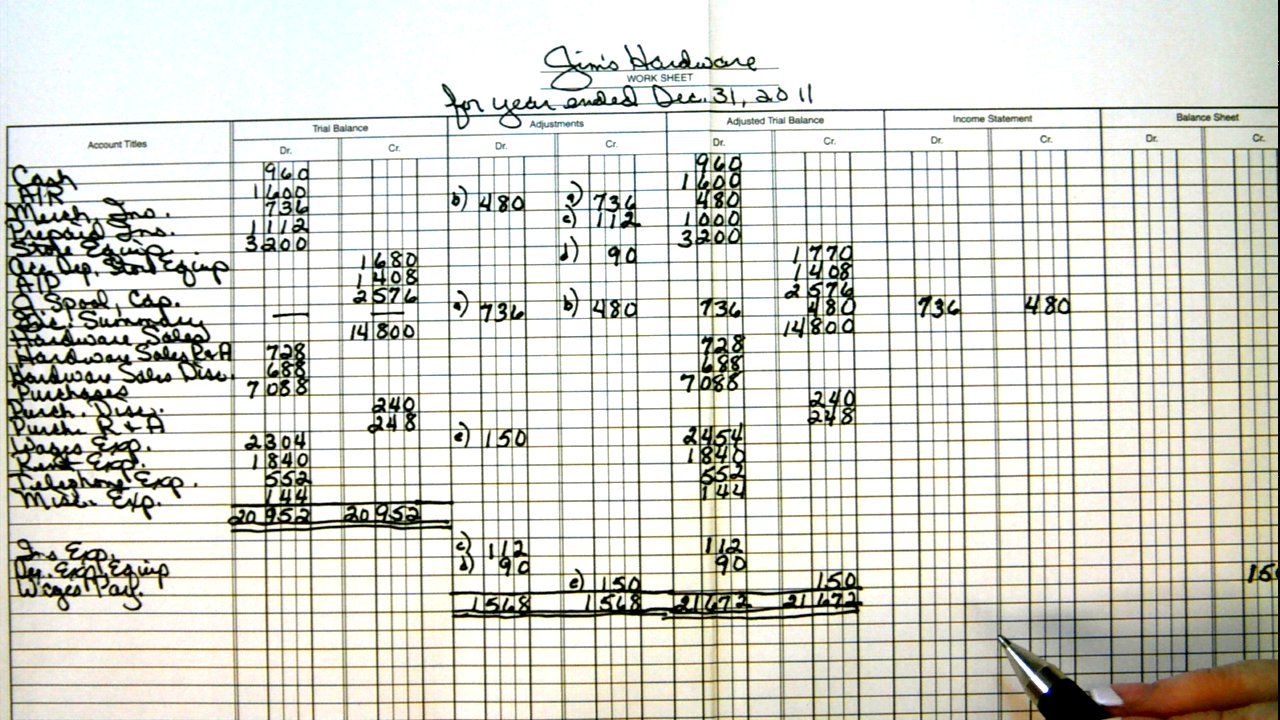 Jim's Hardware
WORK SHEET
for year ended Dec. 31, 2011
Account Titles Trial Balance Adjustments Adjusted Trial Balance Income Statement Balance Sheet
Dr. Cr. Dr. Cr. Dr. Cr. Dr. Cr. Dr. Cr.
Cash 960 960
A/R 1600 1600
Merch. Ins. 736 b) 480 a) 736 480
Prepaid Ins. 1112 c) 112 1000
Store Equip. 3200 3200
Acc. Dep. Store Equip 1680 d) 90 1770
A/P 1408 1408
J. Spool, Cap. 2576 2576
Inc. Summary — — a) 736 b) 480 736 480 736 480
Hardware Sales 14800 14800
Hardware Sales R&A 728 728
Hardware Sales Disc. 688 688
Purchases 7088 7088
Purch. Disc. 240 240
Purch. R & A 248 248
Wages Exp. 2304 e) 150 2454
Rent Exp. 1840 1840
Telephone Exp. 552 552
Misc. Exp. 144 144
20952 20952
Ins Exp. c) 112 112
Dep. Exp Equip d) 90 90
Wages Pay. e) 150 150 15
1568 1568 21672 21672